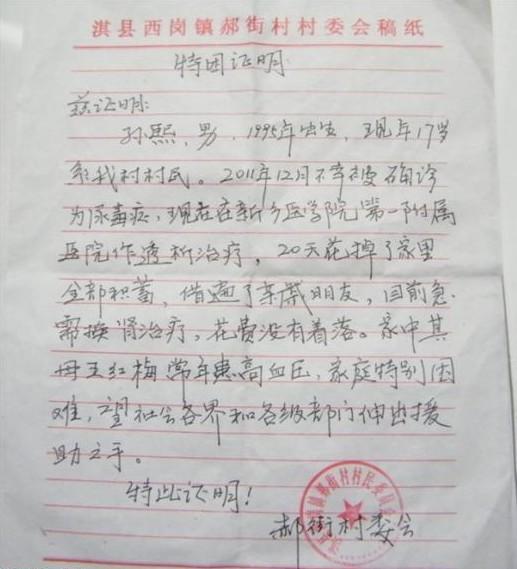 淇县西岗镇郝街村村委会稿纸
特困证明
兹证明:
孙熙,男,1995年出生,现年17岁
系我村村民。2011年12月不幸被确诊
为尿毒症,现在在新乡医学院第一附属
医院作透析治疗,20天花掉了家里
全部积蓄,借遍了亲戚朋友,目前急
需换肾治疗,花费没有着落。家中其
母王红梅常年患高血压,家庭特别困
难,望社会各界和各级部门伸出援
助之手。
特此证明!
郝街村委会